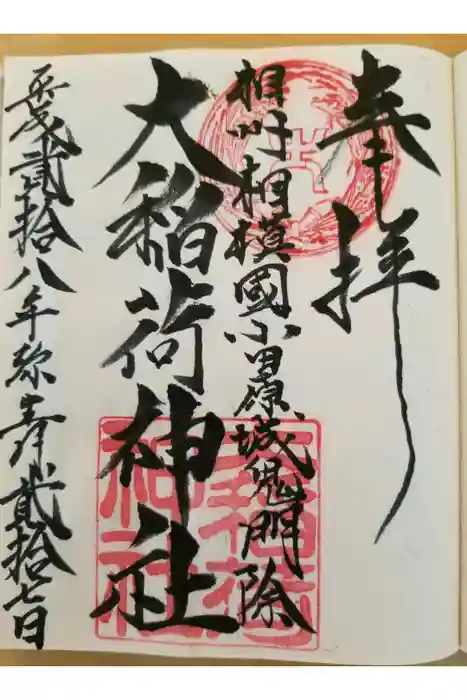 奉拝
相州相模國小田原城鬼門除
大稲荷神社
平成貳拾八年弥生月貳拾七日
大稲荷神社